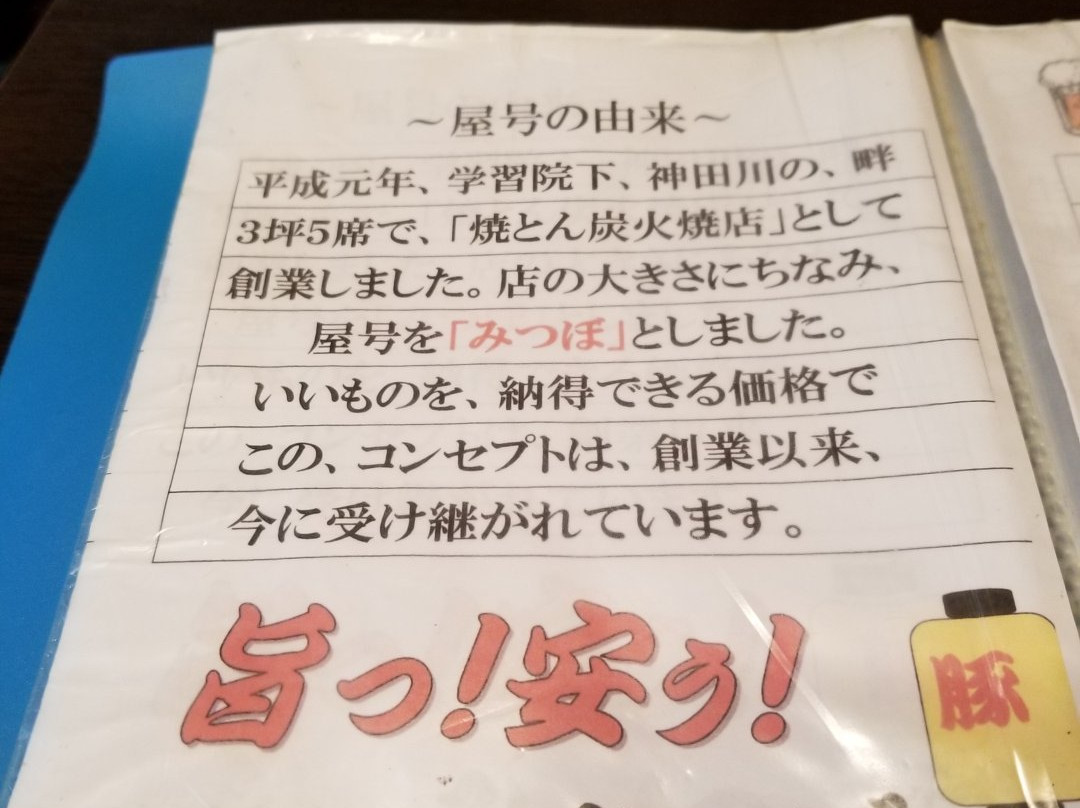 ～屋号の由来～
平成元年、学習院下、神田川の、畔
3坪5席で、「焼とん炭火焼店」として
創業しました。店の大きさにちなみ、
屋号を「みつぼ」としました。
いいものを、納得できる価格で
この、コンセプトは、創業以来、
今に受け継がれています。
旨っ!安う!
豚